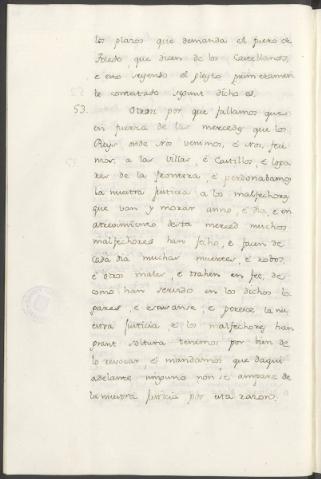 los plazos que demanda el fuero de
Toledo que dicen de los Castellanos,
e esto seyendo el pleyto primeramen
te contestado segunt dicho es.
53. Otrosi por que fallamos que
en fuerza de las mercedes que los
Reyes onde nos venimos, e nos, feci
mos, a las Villas, e Castillos, e loga
res de la frontera, e perdonabamos
la nuestra justicia a los malfechores
que van y morar anno, e dia, e en
atrevimiento desta merced muchos
malfechores han fecho, e facen de
cada dia muchas muertes, e robos,
e otros males, e trahen en fee, de
como han servido en los dichos lo
gares, e escusanse, e perece la nu
estra justicia, e los malfechores han
grant soltura tenemos por bien de
lo revocar, e mandamos que daqui
adelante ninguno non se ampare de
la nuestra justicia por esta razon.